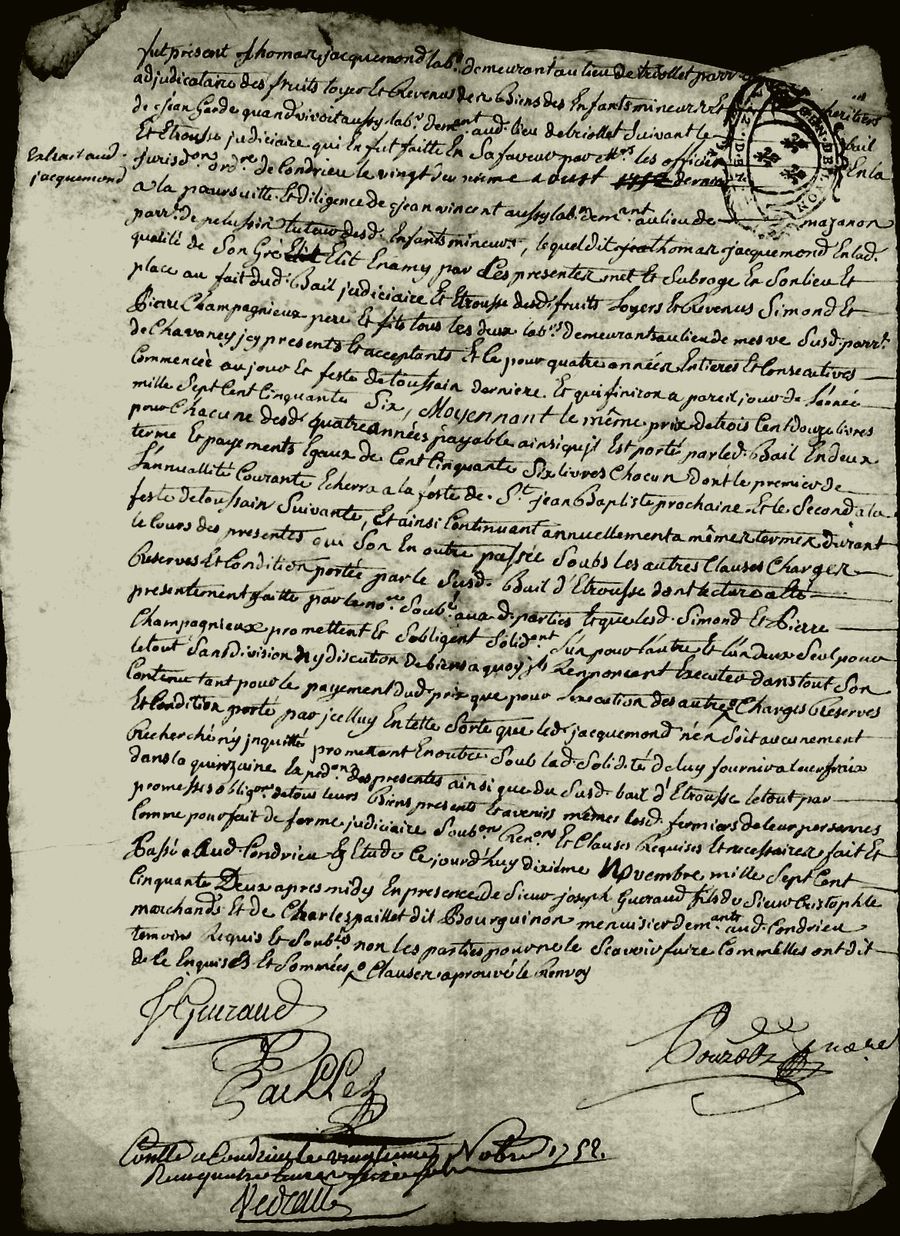 fut présent thomas jacquemond lab.r demeurant au lieu de triollet parr
adjudicataire des fruits loyer et Revenus des Biens des Enfants mineurs Et heritiers
de jean Garde quand vivoit aussy lab.r dem.ant aud. lieu de triollet Suivant le bail
Et Etrousse judiciaire qui En fut faitte En Sa faveur par les officiers En la
Extrait aud.
jacquemond
jurisd.on ord.re de Condrieu le vingt aoust 1752 dernier
a la poursuitte Et diligence de jean vincent aussy lab.r dem.ant au lieu de majanon
parr.e de pelussin tuteur desd. Enfants mineurs, lequel dit thomas jacquemond En lad.
qualité de Son Gré Elit Enamy par Les presentes met Et Subroge En Son lieu Et
place au fait dud. Bail judiciaire Et Etrousse desd. fruits Loyers Et Revenus Simond Et
Pierre Champagnieux pere Et fils tous les deux lab.rs demeurants au lieu de mesve Susd. parr.e
de Chavaney jcy presents Et acceptants Et ce pour quatre années Entieres Et Consecutives
Commencée au jour Et feste de toussain derniere. Et qui finiront a pareil jour de l'année
mille Sept Cent Cinquante Six, Moyennant le même prix de trois Cent douze livres
pour Chacune desd. quatre années payable ainsi qu'il Est porté par led. Bail En deux
terme Et payements Egaux de Cent Cinquante Six livres Chacun dont le premier de
l'annuallité Courante Echerra a la feste de S.t jean Baptiste prochaine Et le Second a la
feste de toussain Suivante, Et ainsi Continuant annuellement a mêmes termes durant
le Cours des presentes qui Son En outre passée Soubs les autres Clauses Charges
Reserves Et Condition portée par le Susd. Bail d'Etrousse dont lecture a Eté
presentement faitte par le no.re Soub.é aux d. parties Et que lesd. Simond Et Pierre
Champagnieux promettent Et S'obligent Solid.ent l'un pour l'autre Et l'un deux Seul pour
le tout Sans division ny discution de biens a quoy jls Renoncent Executer dans tout Son
Contenu tant pour le payement dud. prix que pour l'execution des autres Charges Reserves
Et Condition porté par jcelluy En telle Sorte que led. jacquemond n'en Soit aucunement
Recherché n'y jnquitté promettant En outre Soub lad. Solidité de luy fournir a leur fraix
dans la quinzaine Expéd.on des presentes ainsi que du Susd. bail d'Etrousse le tout par
promesses oblig.ons de tous leurs Biens presents Et avenirs mêmes lesd. fermiers de leur personnes
Comme pour fait de ferme judiciaire Soub.on Ren.ons Et Clauses Requises Et necessaires fait Et
Passé aud. Condrieu Et Etude Ce jourd'huy dixième Novembre mille Sept Cent
Cinquante Deux apres midy En presence de Sieur joseph Gueraud fils du Sieur Cristophle
marchands Et de Charles paillet dit Bourguinon menuisier dem.ants aud. Condrieu
temoins Requis Et Soub.és non les parties pour ne le Scavoir faire Comm'elles ont dit
de Ce Enquises Et Sommées Clauses aprouvé le Renvoy
J Guiraud
Paillet
Contllé a Condrieu le Nobre 1752.